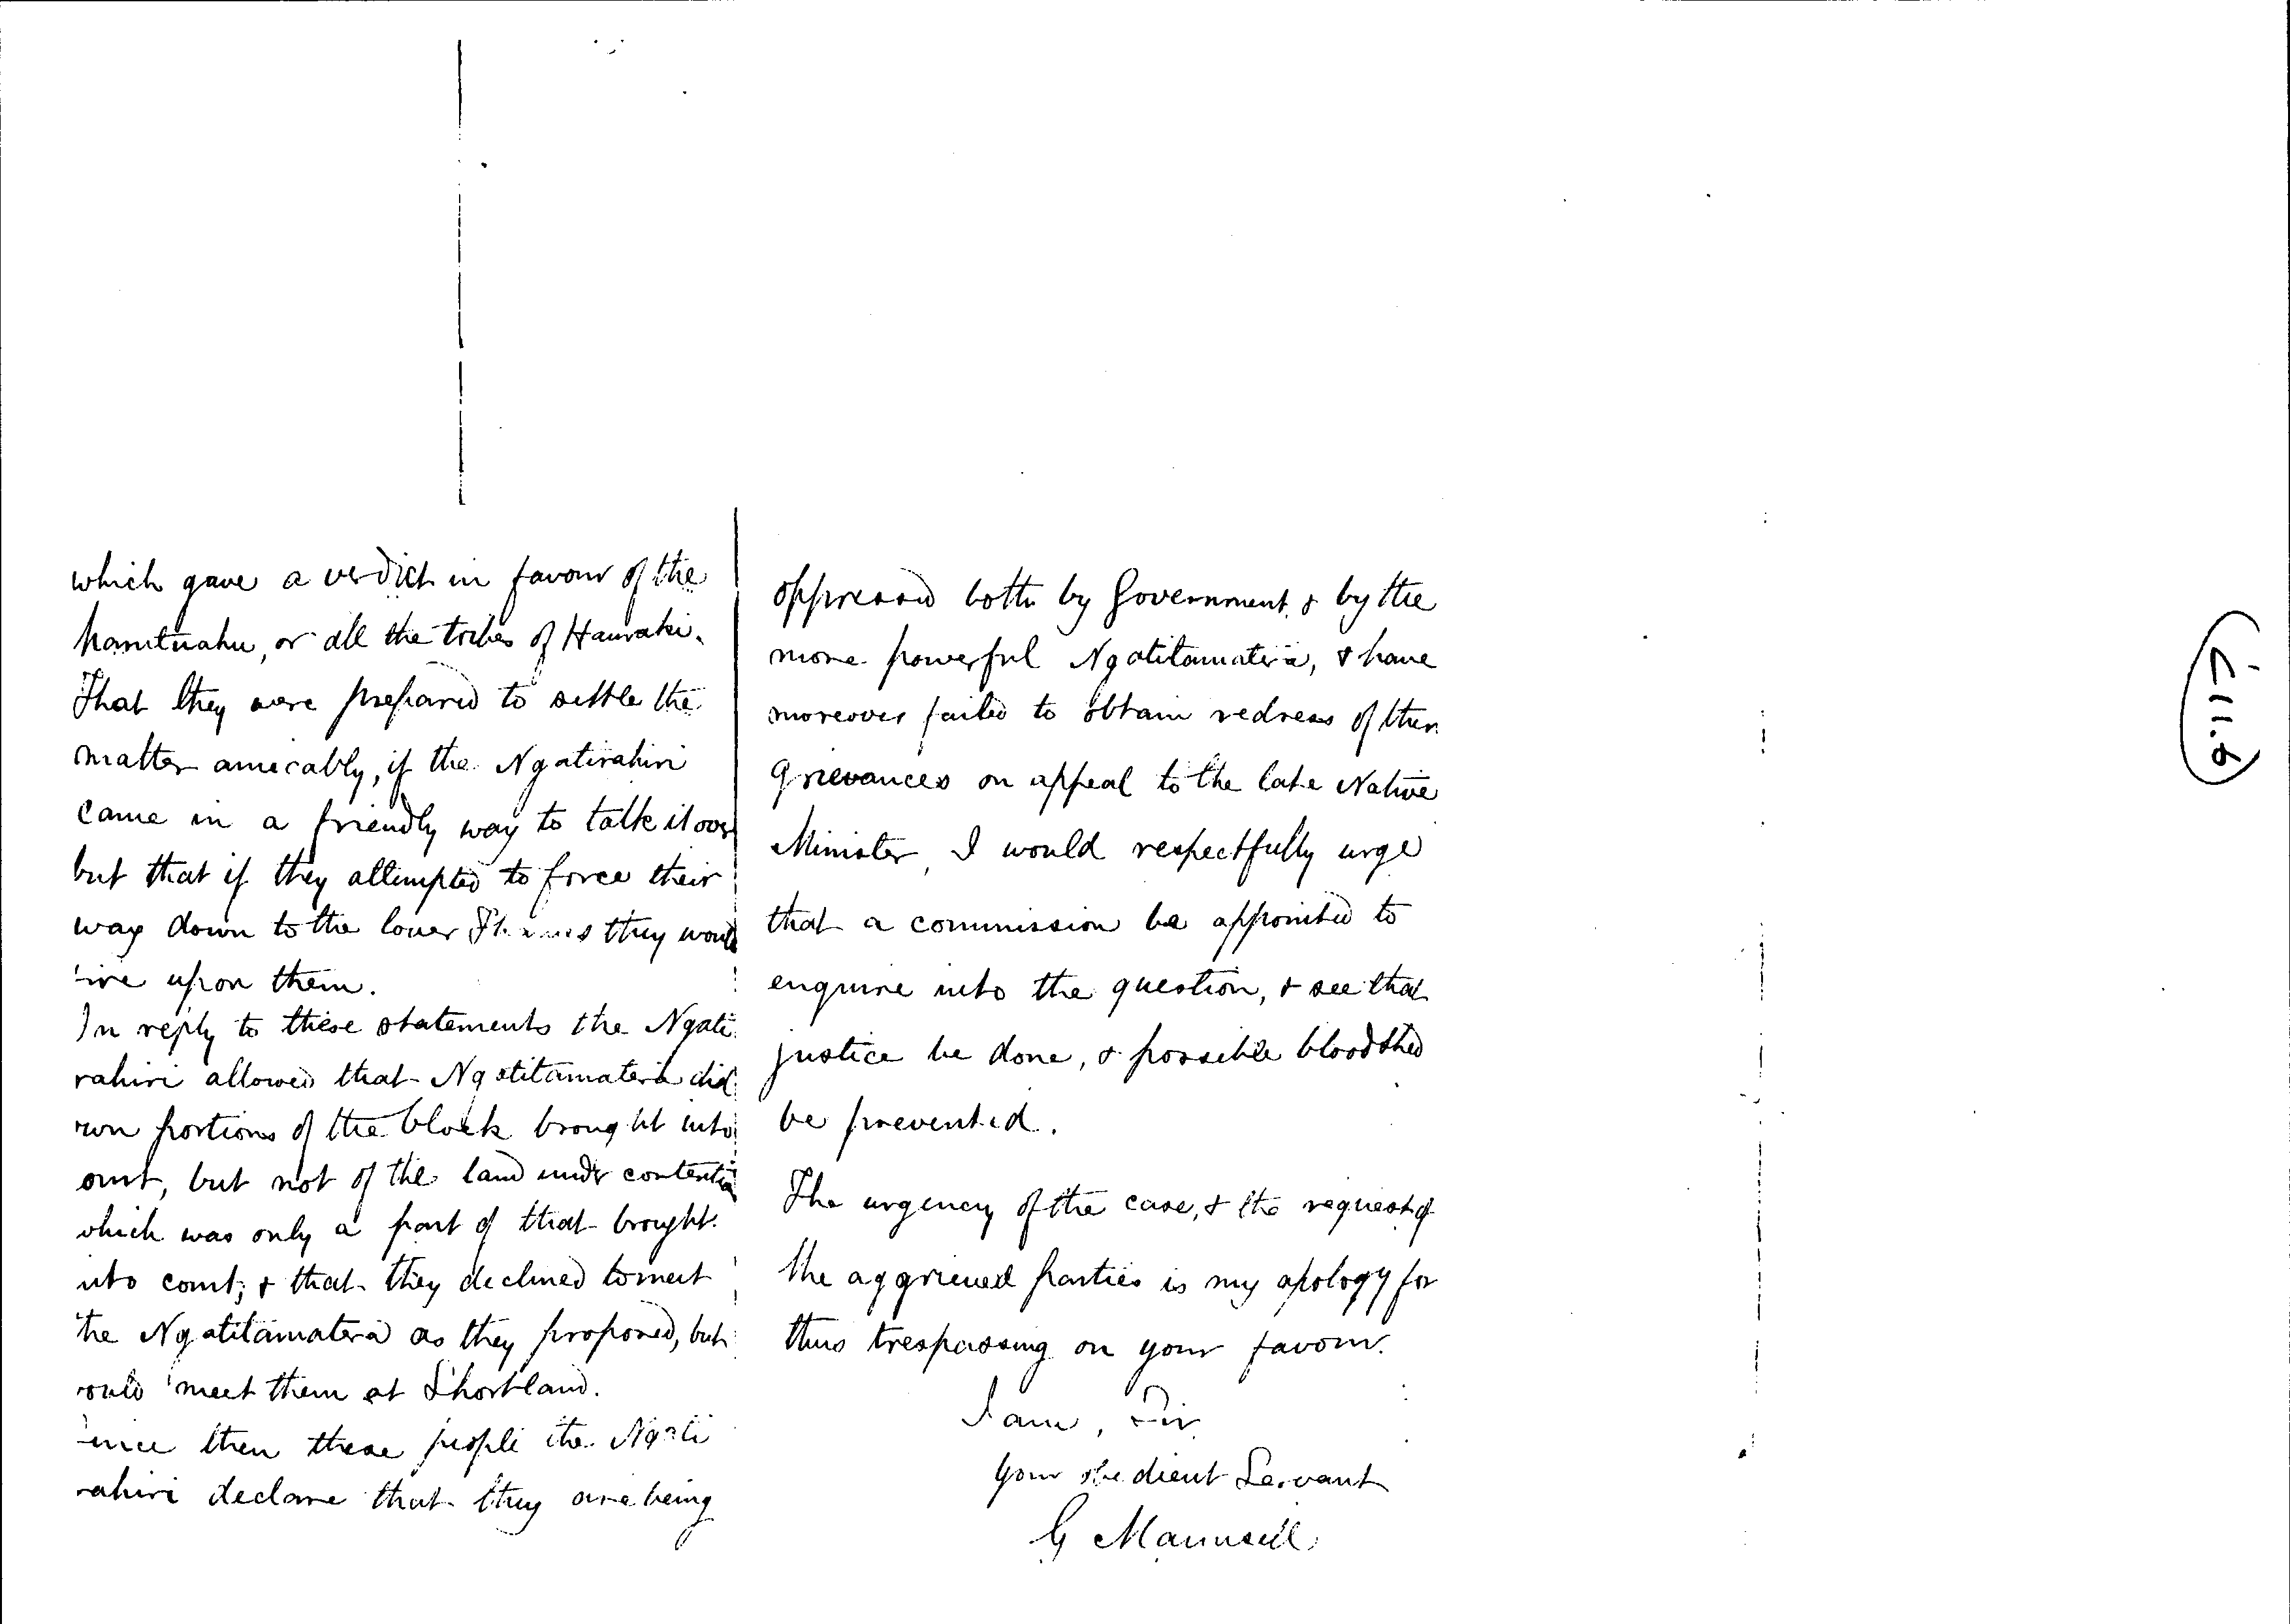 which gave a verdict in favour of the
Marutuahu, or all the tribes of Hauraki.
That they were prepared to settle the
matter amicably, if the Ngatirahiri
came in a friendly way to talk it over
but that if they attempted to force their
way down to the lower Thames they would
ire upon them.
In reply to these statements the Ngati
rahiri allowed that Ngatitamatera did
wn portions of the block brought into
ourt, but not of the land under contention
which was only a part of that brought
nto court; & that they declined to meet
the Ngatitamatera as they proposed, but
would meet them at Shortland.
ince then these people the Ngati
rahiri declare that they are being
oppressed both by Government & by the
more powerful Ngatitamatera, & have
moreover failed to obtain redress of their
grievances on appeal to the late Native
Minister, I would respectfully urge
that a commission be appointed to
enquire into the question, & see that
justice be done, & possible bloodshed
be prevented.
The urgency of the case, & the request of
the aggrieved parties is my apology for
thus trespassing on your favour.
I am, Sir
Your obedient Servant
G Maunsell